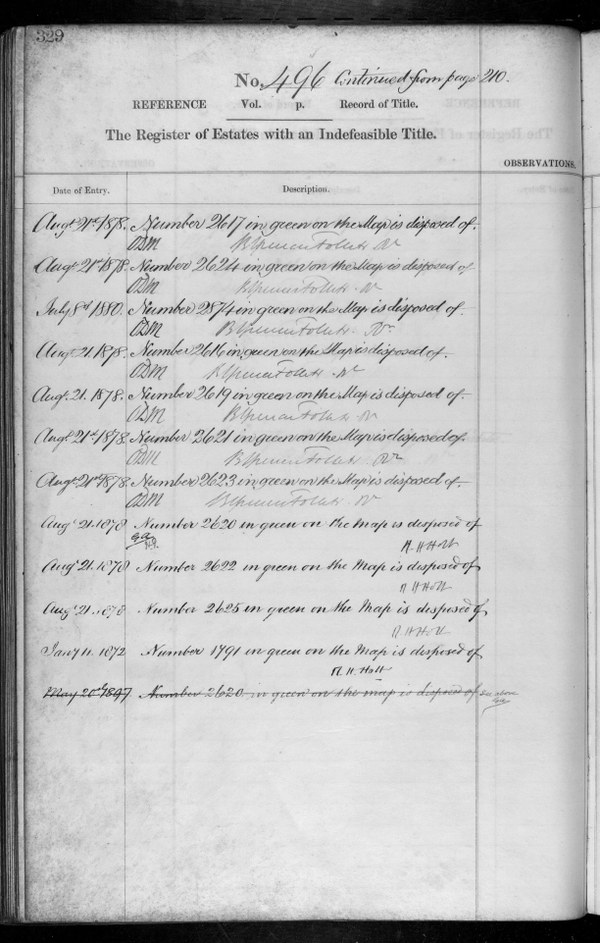 329
No. 496 Continued from page 210.
REFERENCE Vol. p. Record of Title.
The Register of Estates with an Indefeasible Title.
OBSERVATIONS.
Date of Entry. Description.
Augt. 21st 1878. Number 2617 in green on the Map is disposed of.
ODM
Augt. 21st 1878. Number 2624 in green on the Map is disposed of
ODM
July 8th 1880. Number 2874 in green on the Map is disposed of.
ODM
Augt. 21. 1878. Number 2616 in green on the Map is disposed of.
ODM
Augt. 21. 1878. Number 2619 in green on the Map is disposed of.
ODM
Augt. 21st 1878. Number 2621 in green on the Map is disposed of.
ODM
Augt. 21st 1878. Number 2623 in green on the Map is disposed of.
ODM
Augt 21. 1878 Number 2620 in green on the Map is disposed of
Augt 21. 1878 Number 2622 in green on the Map is disposed of
Augt 21. 1878 Number 2625 in green on the Map is disposed of
Jany 11. 1872 Number 1791 in green on the Map is disposed of
May 20th 1897 Number 2620 in green on the map is disposed of see above